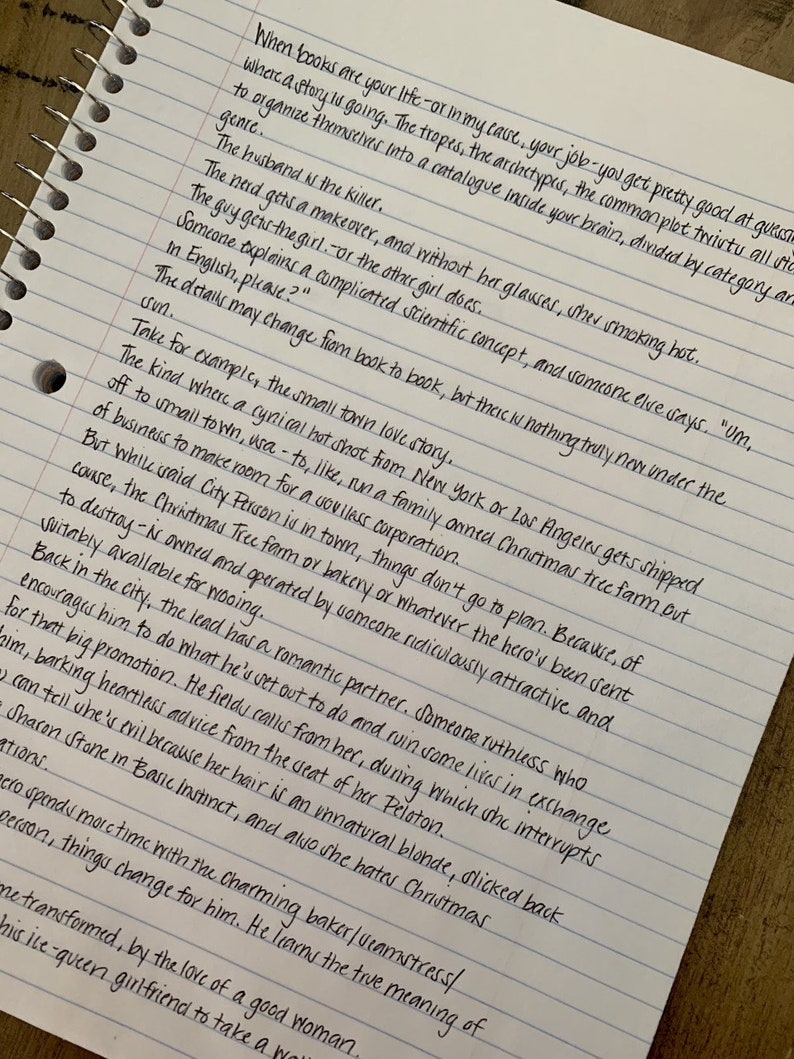 When books are your life-or in my case, your job-you get pretty good at guessing
where a story is going. The tropes, the archetypes, the common plot twists all sta
to organize themselves into a catalogue inside your brain, divided by category an
genre.
The husband is the killer.
The nerd gets a makeover, and without her glasses, shes smoking hot.
The guy gets the girl.-or the other girl does.
Someone explains a complicated scientific concept, and someone else says. "Um,
in English, please?"
The details may change from book to book, but there is nothing truly new under the
sun.
Take for example, the small town love story.
The kind where a cynical hot shot from New York or Los Angeles gets shipped
off to small town, usa - to, like, run a family owned Christmas tree farm out
of business to make room for a soulless corporation.
But while said City Person is in town, things don't go to plan. Because, of
course, the Christmas Tree farm or bakery or whatever the hero's been sent
to destroy-is owned and operated by someone ridiculously attractive and
suitably available for wooing.
Back in the city, the lead has a romantic partner. Someone ruthless who
encourages him to do what he's set out to do and ruin some lives in exchange
for that big promotion. He fields calls from her, during which she interrupts
him, barking heartless advice from the seat of her Peloton.
can tell she's evil because her hair is an unnatural blonde, slicked back
Sharon Stone in Basic Instinct, and also she hates Christmas
ations.
ero spends more time with the charming baker/seamstress/
person, things change for him. He learns the true meaning of
me transformed, by the love of a good woman.
his ice-queen girlfriend to take a